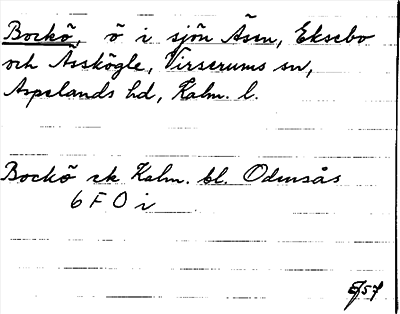 Bockö, ö i sjön Åsen, Eksebo
och Åsskögle, Virserums sn,
Aspelands hd, Kalm. l.
Bockö ek Kalm. bl. Odensås
6 F 0 i
E/57